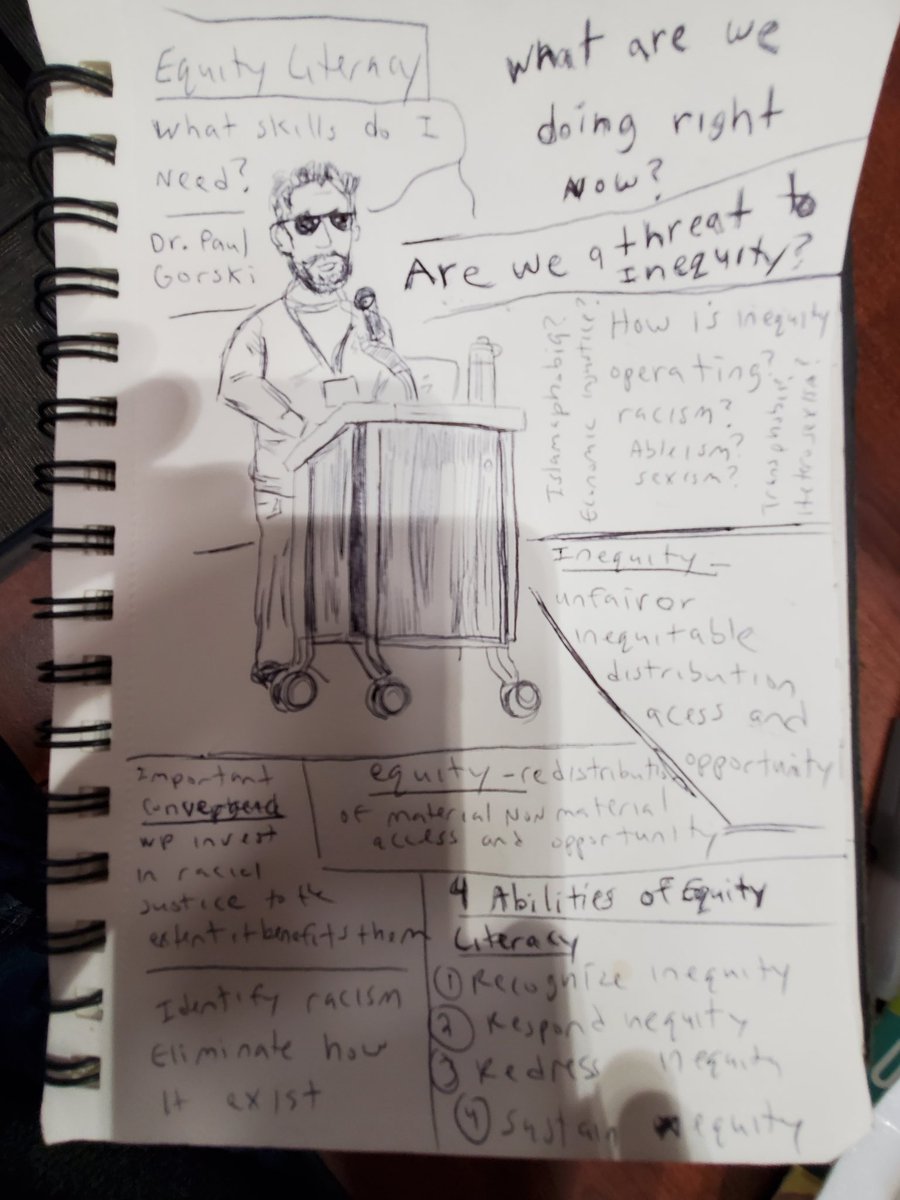 Equity Literacy
What skills do I
Need?
Dr. Paul
Gorski
What are we
doing right
now?
Are we a threat to
Inequity?
How is inequity
operating?
racism?
Ableism?
sexism?
Islamaphobia?
Economic injustice?
Transphobia?
Hetrosexism?
Inequity -
unfair or
inequitable
distribution
acess and
opportunity
equity - redistribution
of material Non material
access and opportunity
Important
we invest
in racial
justice to the
extent it benefits them
Identify racism
Eliminate how
It exist
4 Abilities of Equity
Literacy
① Recognize inequity
② Respond nequity
③ Redress inequity
④ Sustain equity